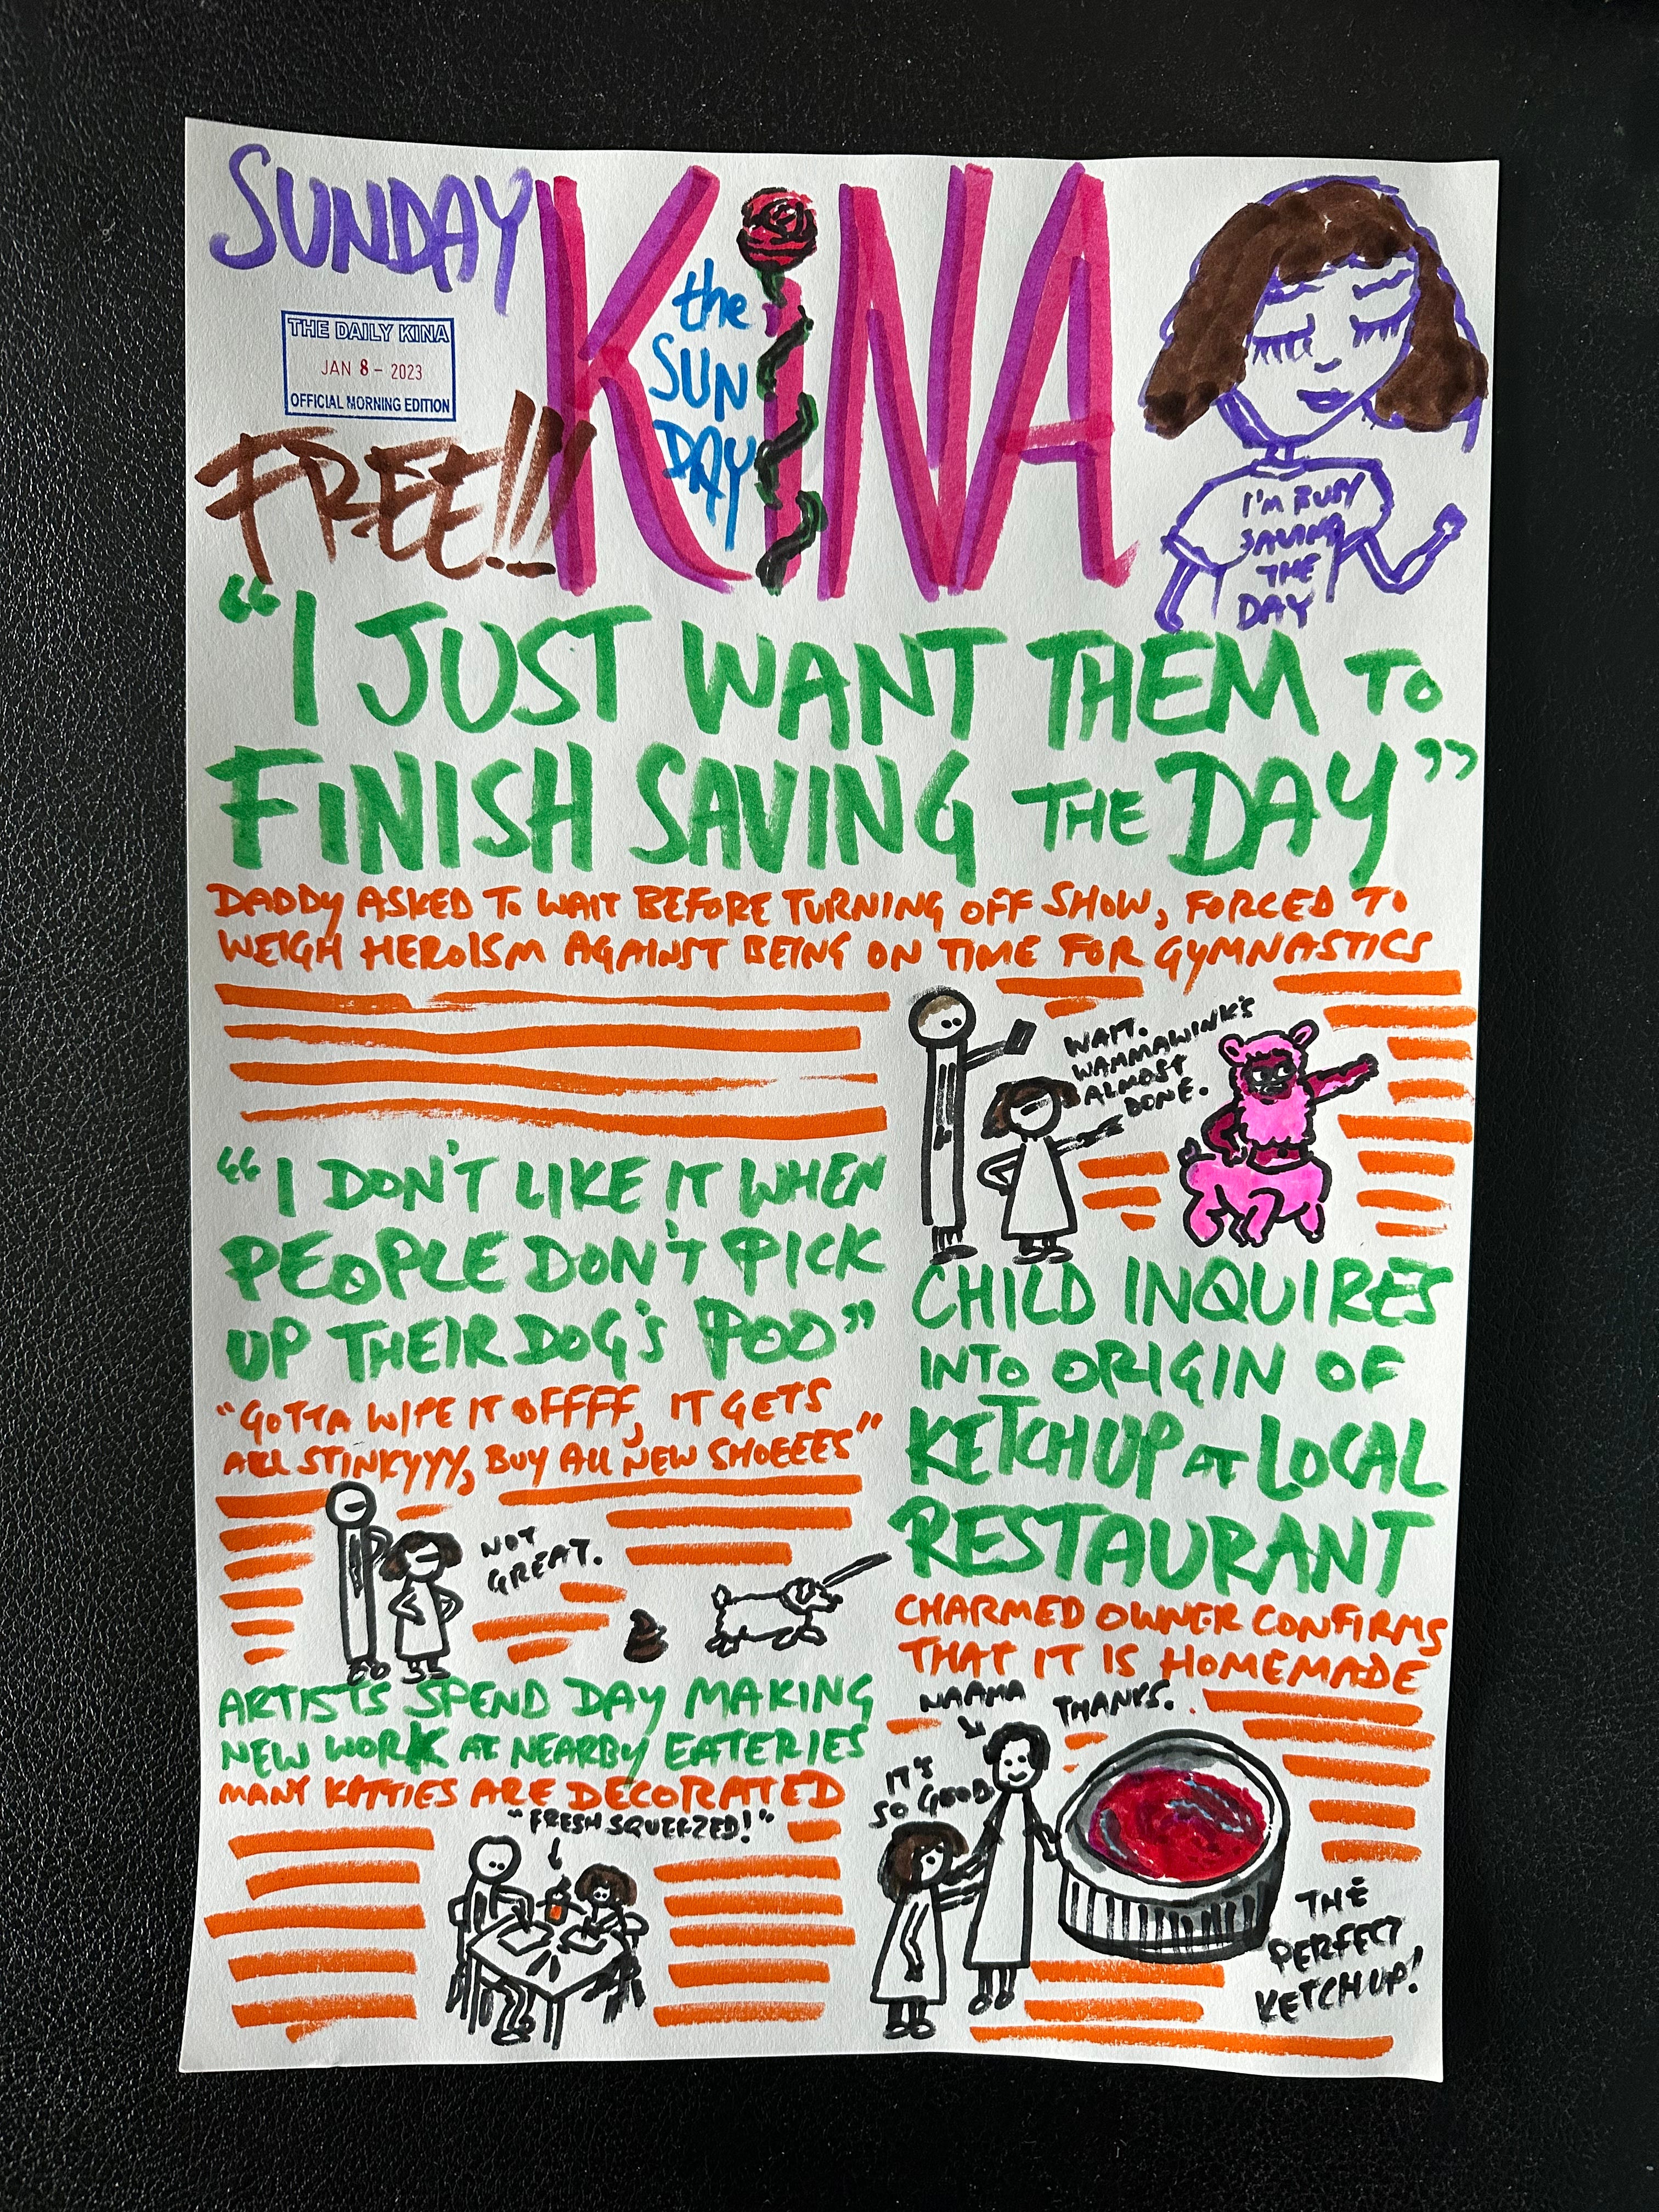 SUNDAY
THE DAILY KINA
JAN 8 - 2023
OFFICIAL MORNING EDITION
FREE!!!
KINA
the
SUN
DAY
I'M BUSY
SAVING
THE
DAY
"I JUST WANT THEM TO
FINISH SAVING THE DAY"
DADDY ASKED TO WAIT BEFORE TURNING OFF SHOW, FORCED TO
WEIGH HEROISM AGAINST BEING ON TIME FOR GYMNASTICS
WAIT.
WAMMAWINK'S
ALMOST
DONE.
"I DON'T LIKE IT WHEN
PEOPLE DON'T PICK
UP THEIR DOG'S POO"
"GOTTA WIPE IT OFFFF, IT GETS
ALL STINKYYY, BUY ALL NEW SHOEEES"
NOT
GREAT.
ARTISTS SPEND DAY MAKING
NEW WORK AT NEARBY EATERIES
MANY KITTIES ARE DECORATED
"FRESH SQUEEZED!"
CHILD INQUIRES
INTO ORIGIN OF
KETCHUP AT LOCAL
RESTAURANT
CHARMED OWNER CONFIRMS
THAT IT IS HOMEMADE
NAAMA
THANKS.
IT'S
SO GOOD
THE
PERFECT
KETCHUP!